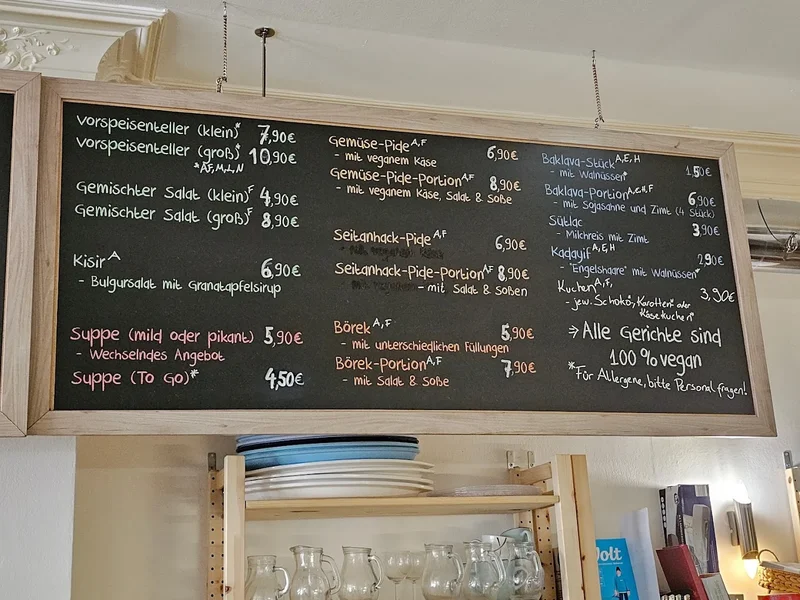 Vorspeisenteller (klein)* 7,90€
Vorspeisenteller (groß)* 10,90€
*A,F,M,L,N
Gemischter Salat (klein)F 4,90€
Gemischter Salat (groß)F 8,90€
Kisir A 6,90€
- Bulgursalat mit Granatapfelsirup
Suppe (mild oder pikant) 5,90€
- Wechselndes Angebot
Suppe (To Go)* 4,50€
Gemüse-Pide A,F 6,90€
- mit veganem Käse
Gemüse-Pide-Portion A,F 8,90€
- mit veganem Käse, Salat & Soße
Seitanhack-Pide A,F 6,90€
Seitanhack-Pide-Portion AF 8,90€
- mit Salat & Soßen
Börek A,F 5,90€
- mit unterschiedlichen Füllungen
Börek-Portion A,F 7,90€
- mit Salat & Soße
Baklava-Stück A,E,H 1,50€
- mit Walnüssen*
Baklava-Portion A,E,H,F 6,90€
- mit Sojasahne und Zimt (4 Stück)
Sütlaç 3,90€
- Milchreis mit Zimt
Kadayif A,E,H 2,90€
- "Engelshaare" mit Walnüssen*
Kuchen A,F, 3,90€
- jew. Schoko, Karotten* oder
Käsekuchen*
⇒ Alle Gerichte sind
100 % vegan
*Für Allergene, bitte Personal fragen!
Volt